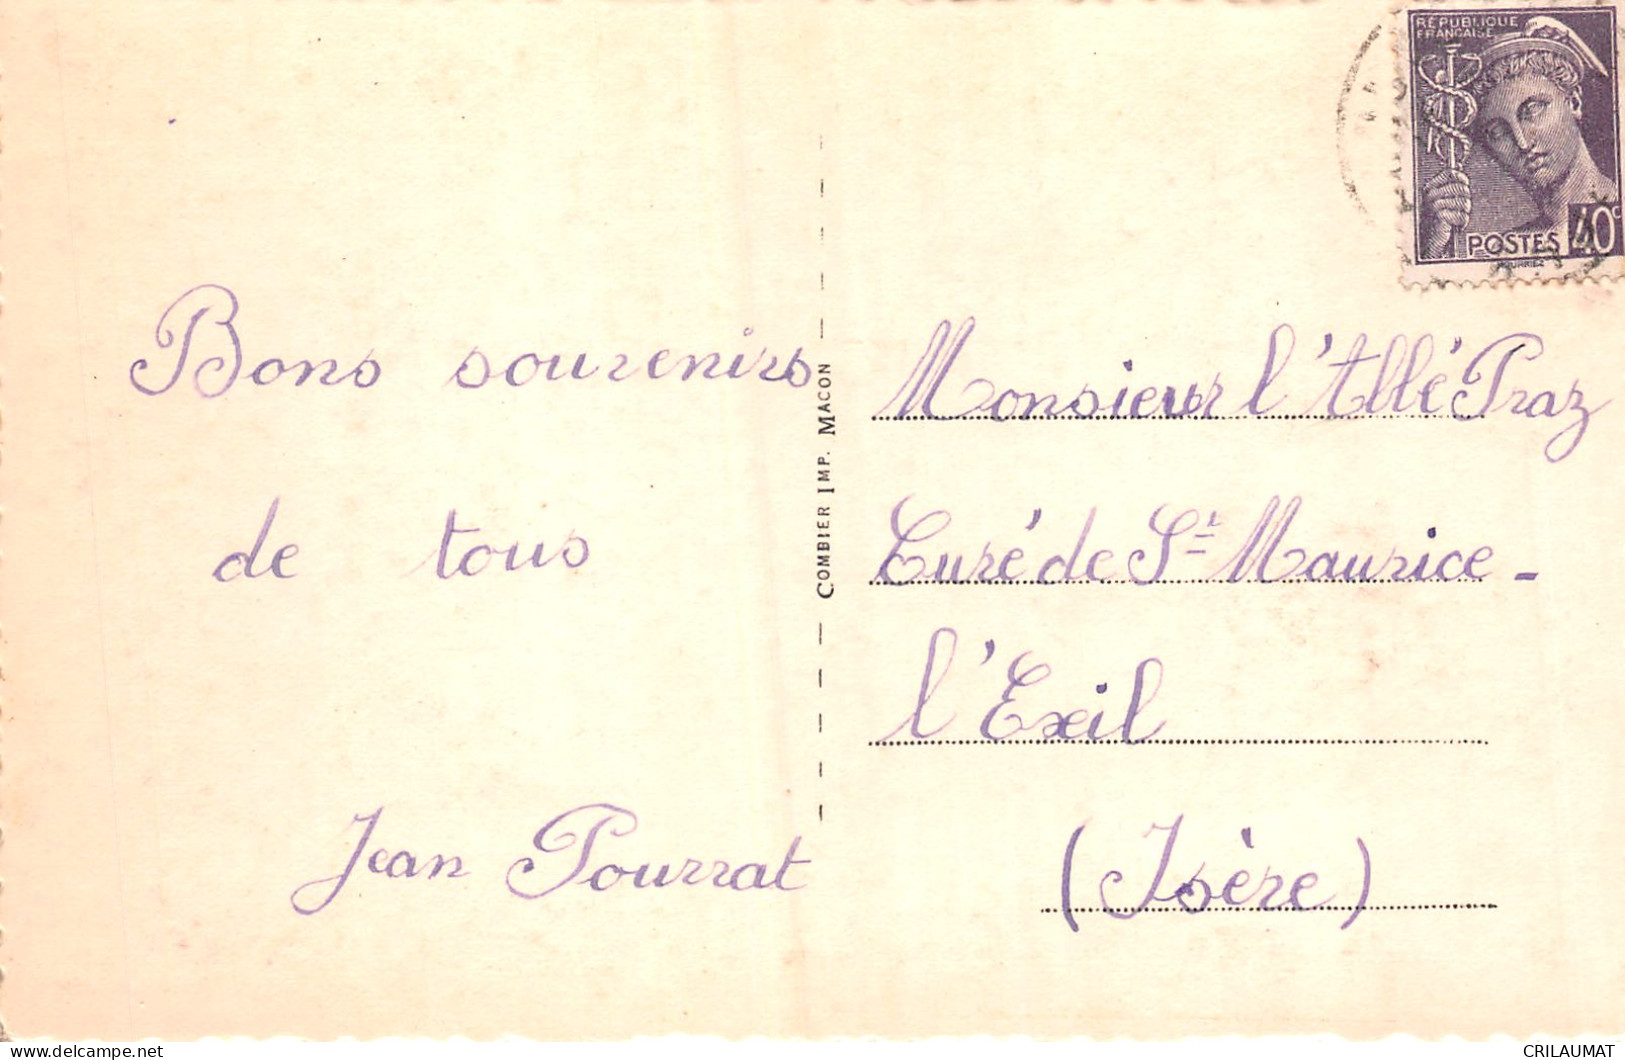 RÉPUBLIQUE
FRANÇAISE
POSTES 40c
Bons souvenirs
de tous
Jean Pourrat
COMBIER IMP. MACON
Monsieur l'Abbé Praz
Curé de St Maurice -
l'Exil
(Isère)
CRILAUMAT